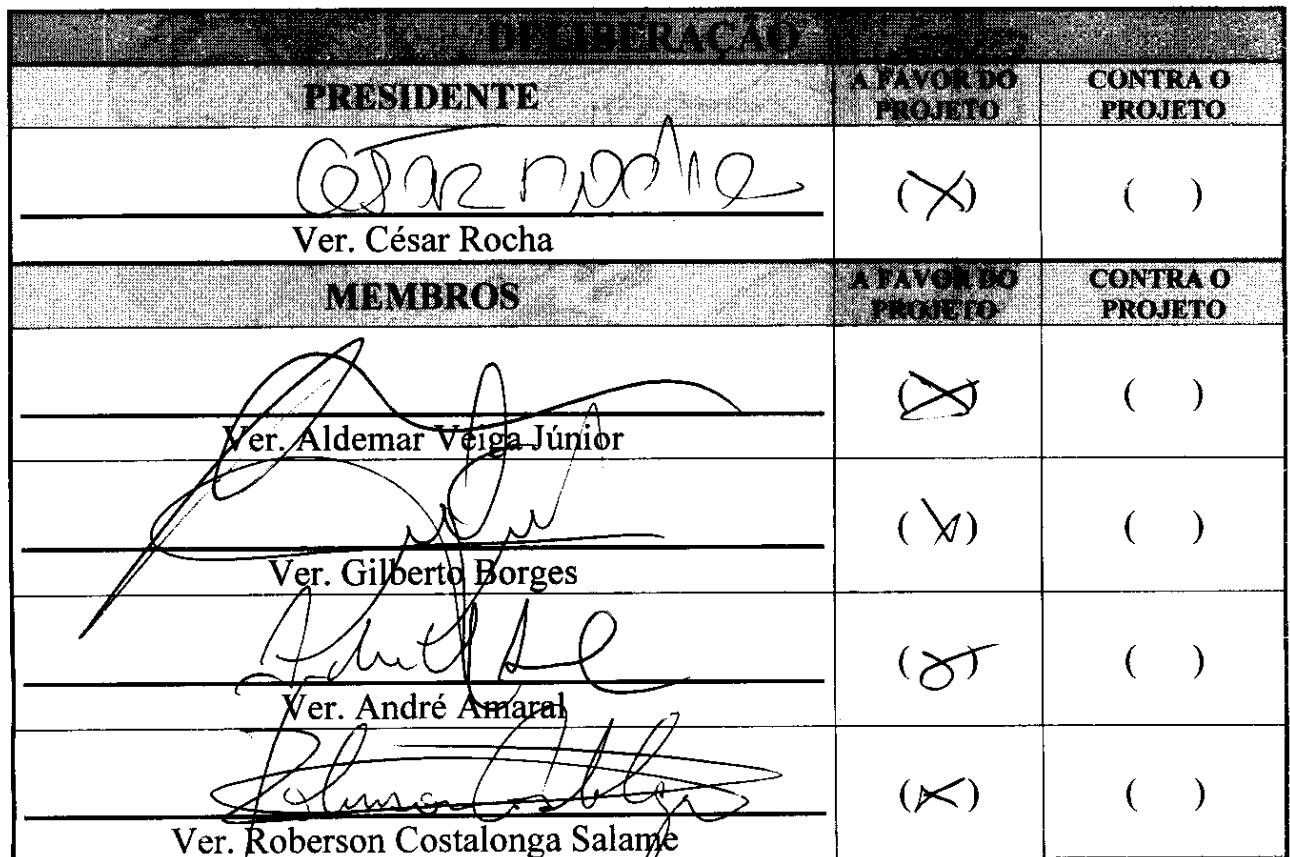 DELIBERAÇÃO
PRESIDENTE
A FAVOR DO PROJETO
CONTRA O PROJETO
César Rocha
(X)
( )
Ver. César Rocha
MEMBROS
A FAVOR DO PROJETO
CONTRA O PROJETO
(X)
( )
Ver. Aldemar Veiga Júnior
(X)
( )
Ver. Gilberto Borges
(X)
( )
Ver. André Amaral
(X)
( )
Ver. Roberson Costalonga Salame